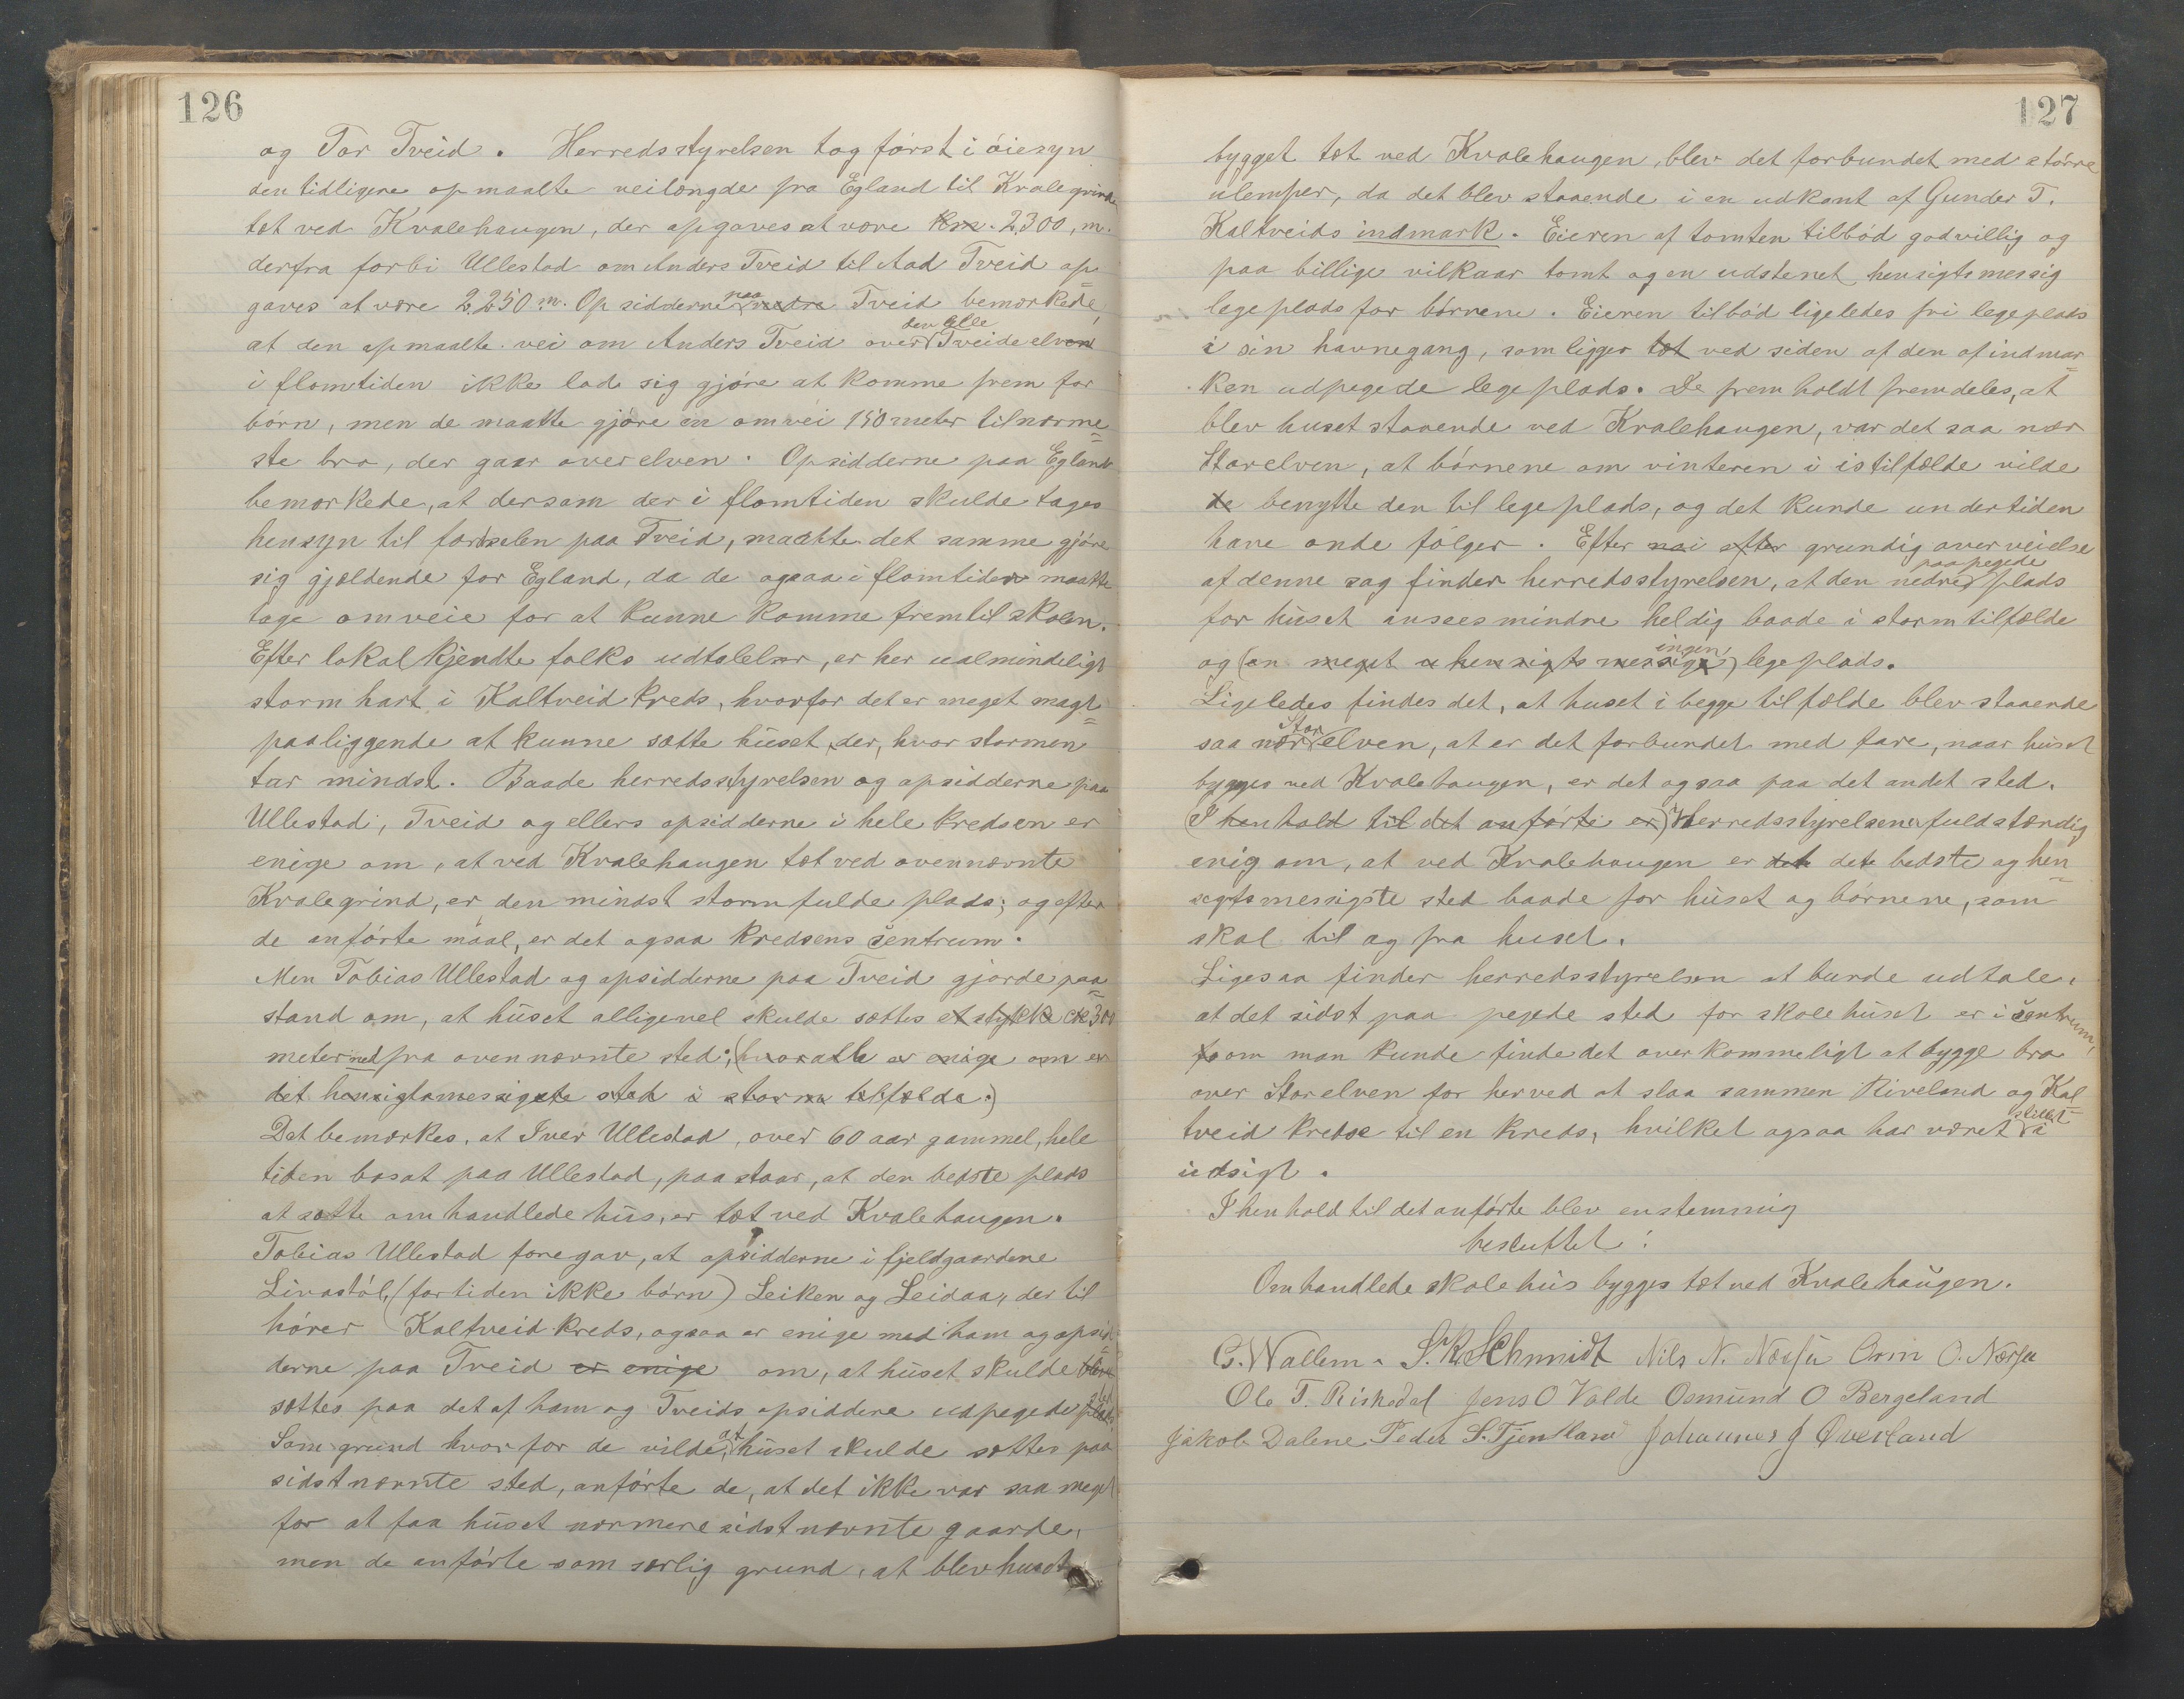 126
og Tor Tveid. Herredsstyrelsen tog først i øiesyn
den tidligere opmaalte veilængde fra Egland til Kvalegrind
tæt ved Kvalehaugen, der opgaves at være km. 2.300, m.
derfra forbi Ullestad om Anders Tveid til Aad Tveid op=
gaves at være 2.250 m. Opsidderne paa nedre Tveid bemærkede,
at den opmaalte vei om Anders Tveid over den lille Tveideelven
i flomtiden ikke lod sig gjøre at komme frem for
børn, men de maatte gjøre en omvei 150 meter til nærme=
ste bro, der gaar over elven. Opsidderne paa Egland
bemærkede, at dersom der i flomtiden skulde tages
hensyn til færdselen paa Tveid, maatte det samme gjøre
sig gjældende for Egland, da de ogsaa i flomtiden maatte
tage omveie for at kunne komme frem til skolen.
Efter lokalkjendte folks udtalelser, er her ualmindeligt
storm hart i Kaltveid kreds, hvorfor det er meget magt=
paaliggende at kunne sætte huset, der, hvor stormen
tar mindst. Baade herredsstyrelsen og opsidderne paa
Ullestad, Tveid og ellers opsidderne i hele kredsen er
enige om, at ved Kvalehaugen tæt ved ovennævnte
Kvalegrind, er den mindst stormfulde plads; og efter
de anførte maal, er det ogsaa kredsens sentrum.
Men Tobias Ullestad og opsidderne paa Tveid gjorde paa=
stand om, at huset alligevel skulde sættes et stykke ck 300
meter ned fra ovennævnte sted; (hvor alle er enige om er
det hensigtsmessigste sted i storm tilfælde.)
Det bemærkes, at Iver Ullestad, over 60 aar gammel, hele
tiden bosat paa Ullestad, paastaar, at den bedste plads
at sætte omhandlede hus, er tæt ved Kvalehaugen.
Tobias Ullestad foregav, at opsidderne i fjeldgaardene
Livastøl, (for tiden ikke børn) Leiken og Leidaa, der til
hører Kaltveid kreds, ogsaa er enige med ham og opsid
derne paa Tveid er enige om, at huset skulde blive
sættes paa det af ham og Tveids opsiddere udpegede sted.
Som grund hvorfor de vilde, at huset skulde sættes paa
sidstnævnte sted, anførte de, at det ikke var saa meget
for at faa huset nærmere sidstnævnte gaarde,
men de anførte som særlig grund, at blev huset
127
bygget tæt ved Kvalehaugen, blev det forbundet med større
ulemper, da det blev staaende i en udkant af Gunder T.
Kaltveids indmark. Eieren af tomten tilbød godvillig og
paa billige vilkaar tomt og en udstenet hensigtsmessig
legeplads for børnene. Eieren tilbød ligeledes fri legeplads
i sin havnegang, som ligger tæt ved siden af den af indmar=
ken udpegede legeplads. De fremholdt fremdeles, at
blev huset staaende ved Kvalehaugen, var det saa nær
Storelven, at børnene om vinteren i istilfælde vilde
de benytte den til legeplads, og det kunde undertiden
have onde følger. Efter nøi efter grundig overveielse
af denne sag finder herredsstyrelsen, at den nedre paapegede plads
for huset ansees mindre heldig baade i stormtilfælde
og (en meget u hensigtsmessige) ingen legeplads.
Ligeledes findes det, at huset i begge tilfælde blev staaende
saa nær Stor elven, at er det forbundet med fare, naar huset
bygges ved Kvalehaugen, er det ogsaa paa det andet sted.
(I henhold til det anførte er) Herredsstyrelsen er fuldstændig
enig om, at ved Kvalehaugen er det det bedste og hen=
segtsmessigste sted baade for huset og børnene, som
skal til og fra huset.
Ligesaa finder herredsstyrelsen at burde udtale,
at det sidst paa pegede sted for skolehuset er i sentrum,
fo om man kunde finde det overkommeligt at bygge bro
over Storelven for herved at slaa sammen Riveland og Kal=
tveid kredse til en kreds, hvilket ogsaa har været stillet i
udsigt.
I henhold til det anførte blev enstemmig
besluttet:
Omhandlede skolehus bygges tæt ved Kvalehaugen.
G. Wallem. S. K. Schmidt Nils N. Næsse Orm O. Næsse
Ole T. Riskedal Jens O Valde Osmund O Bergeland
Jakob Dalene Peder S. Tjentland Johannes J Øverland